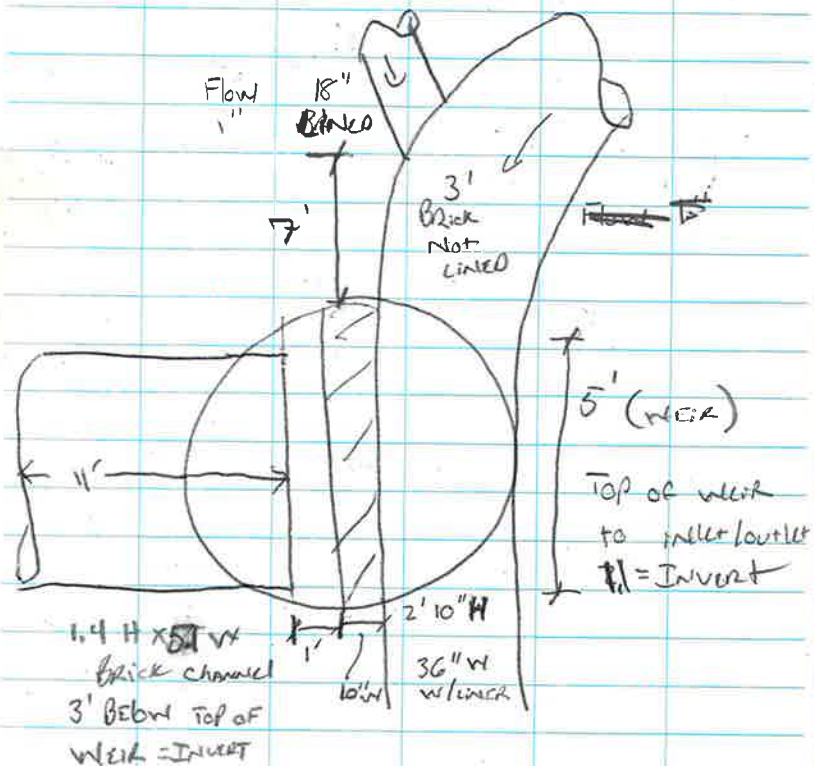 Flow
1"
18"
LINED
7'
3'
Brick
Not
LINED
5' (WEIR)
Top of weir
to inlet/outlet
= Invert
11'
1.4 H x W
Brick channel
3' Below Top of
Weir = Invert
1'
10"W
2' 10" H
36" W
W/LINER